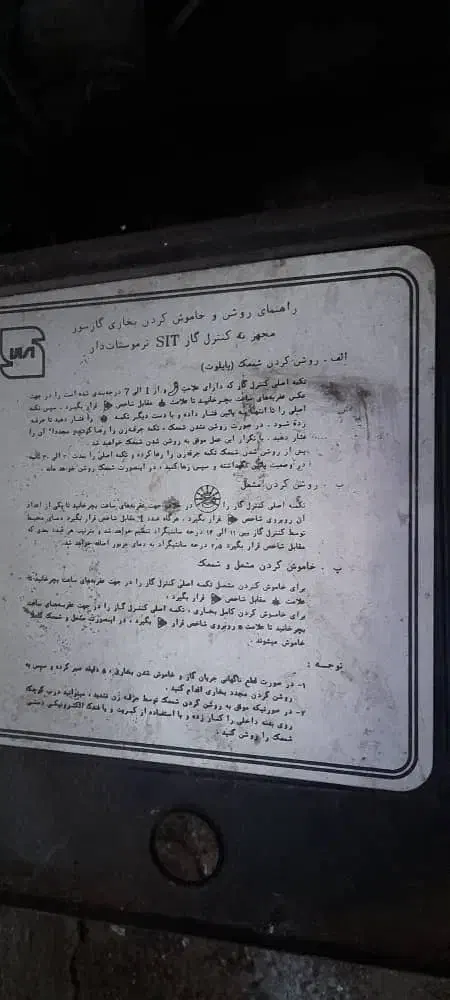 راهنمای روشن و خاموش کردن بخاری گازسوز
مجهز به کنترل گاز SIT ترموستات‌دار
الف - روشن کردن شمعک (پایلوت)
تکمه اصلی کنترل گاز که دارای علامت و از 1 الی 7 درجه‌بندی شده است را در جهت
عکس عقربه‌های ساعت بچرخانید تا علامت مقابل شاخص قرار بگیرد. سپس تکمه
اصلی را تا انتها به پائین فشار داده و با دست دیگر تکمه را فشار دهید تا جرقه
زده شود. در صورت روشن نشدن شمعک، تکمه جرقه‌زن را رها کرده و مجددا" آن را
فشار دهید. با تکرار این عمل موفق به روشن شدن شمعک خواهید شد.
پس از روشن شدن شمعک تکمه جرقه‌زن را رها کرده و تکمه اصلی را بمدت ۲۰ الی ۳۰ ثانیه
در وضعیت پائین نگهداشته و سپس رها کنید، در اینصورت شمعک روشن خواهد ماند.
ب - روشن کردن مشعل
تکمه اصلی کنترل گاز را در خلاف جهت عقربه‌های ساعت بچرخانید تا یکی از اعداد
آن روبروی شاخص قرار بگیرد. هرگاه عدد 1 مقابل شاخص قرار بگیرد دمای محیط
توسط کنترل گاز بین ۱۱ الی ۱۴ درجه سانتیگراد تنظیم خواهد شد و بترتیب هر عدد بعدی که
مقابل شاخص قرار بگیرد ۲٫۵ درجه سانتیگراد به دمای مزبور اضافه خواهد شد.
پ - خاموش کردن مشعل و شمعک
برای خاموش کردن مشعل تکمه اصلی کنترل گاز را در جهت عقربه‌های ساعت بچرخانید تا
علامت مقابل شاخص قرار بگیرد.
برای خاموش کردن کامل بخاری، تکمه اصلی کنترل گاز را در جهت عقربه‌های ساعت
بچرخانید تا علامت روبروی شاخص قرار بگیرد، در اینصورت مشعل و شمعک کاملا
خاموش میشوند.
توجه :
۱- در صورت قطع ناگهانی جریان گاز و خاموش شدن بخاری، ۵ دقیقه صبر کرده و سپس به
روشن کردن مجدد بخاری اقدام کنید.
۲- در صورتیکه موفق به روشن کردن شمعک توسط جرقه زن نشدید، میتوانید درب کوچک
روی بدنه داخلی را کنار زده و با استفاده از کبریت و یا فندک الکترونیکی دستی
شمعک را روشن کنید.